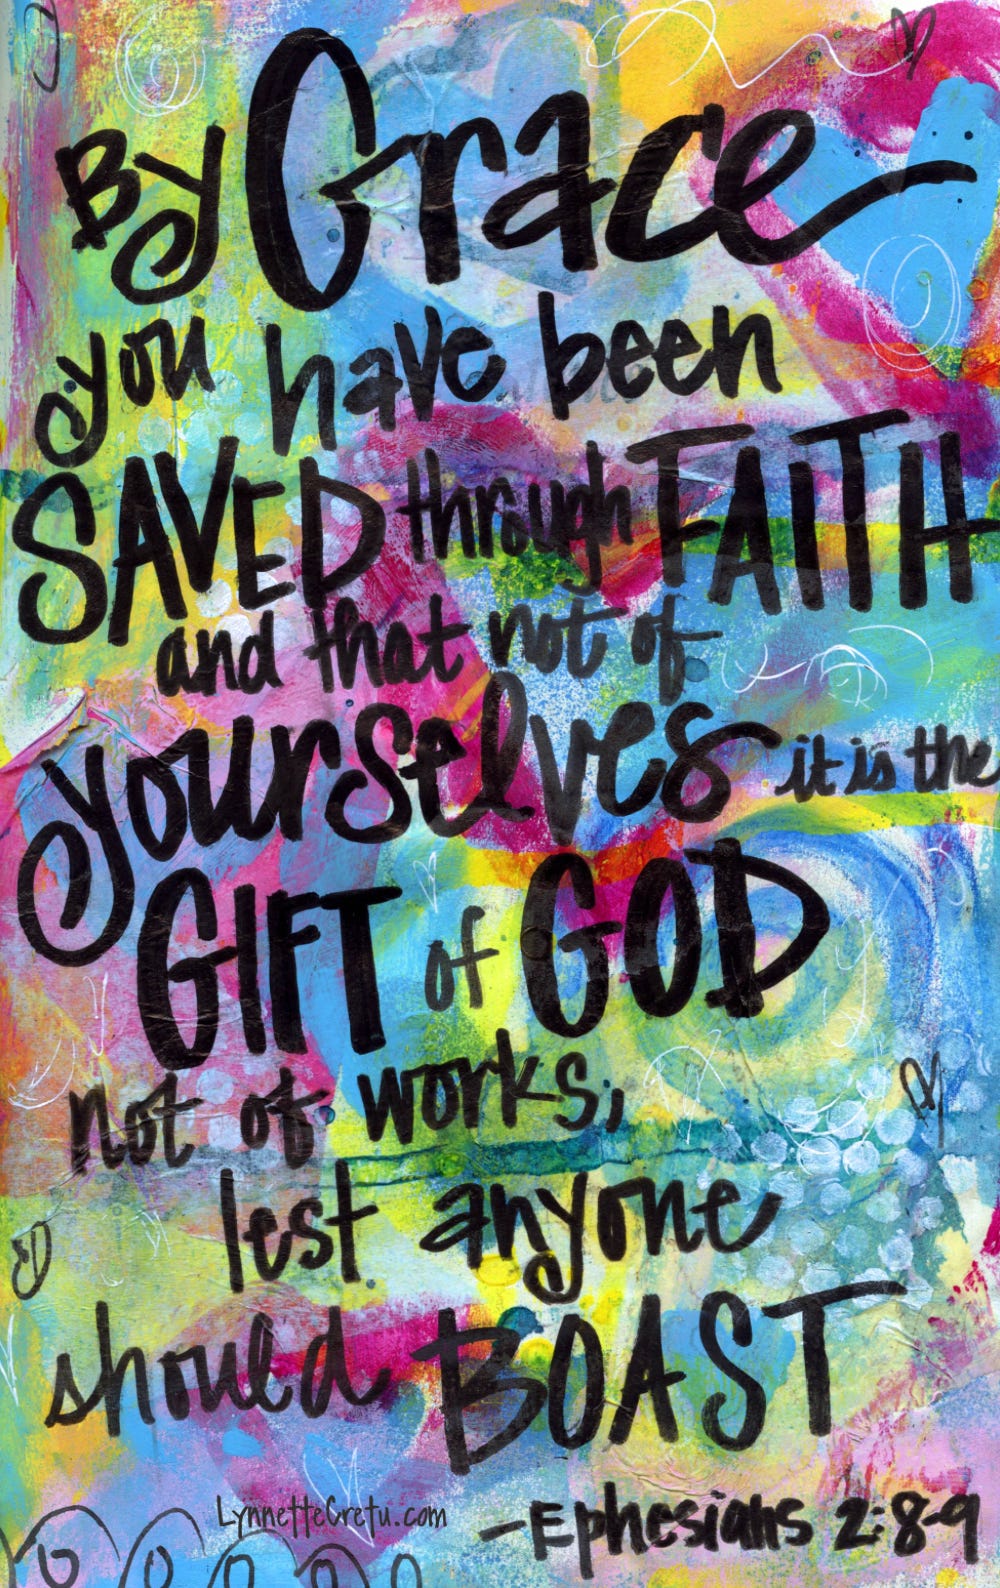 By Grace
you have been
SAVED through FAITH
and that not of
yourselves it is the
GIFT of GOD
not of works;
lest anyone
should BOAST
LynnetteCretu.com
-Ephesians 2:8-9